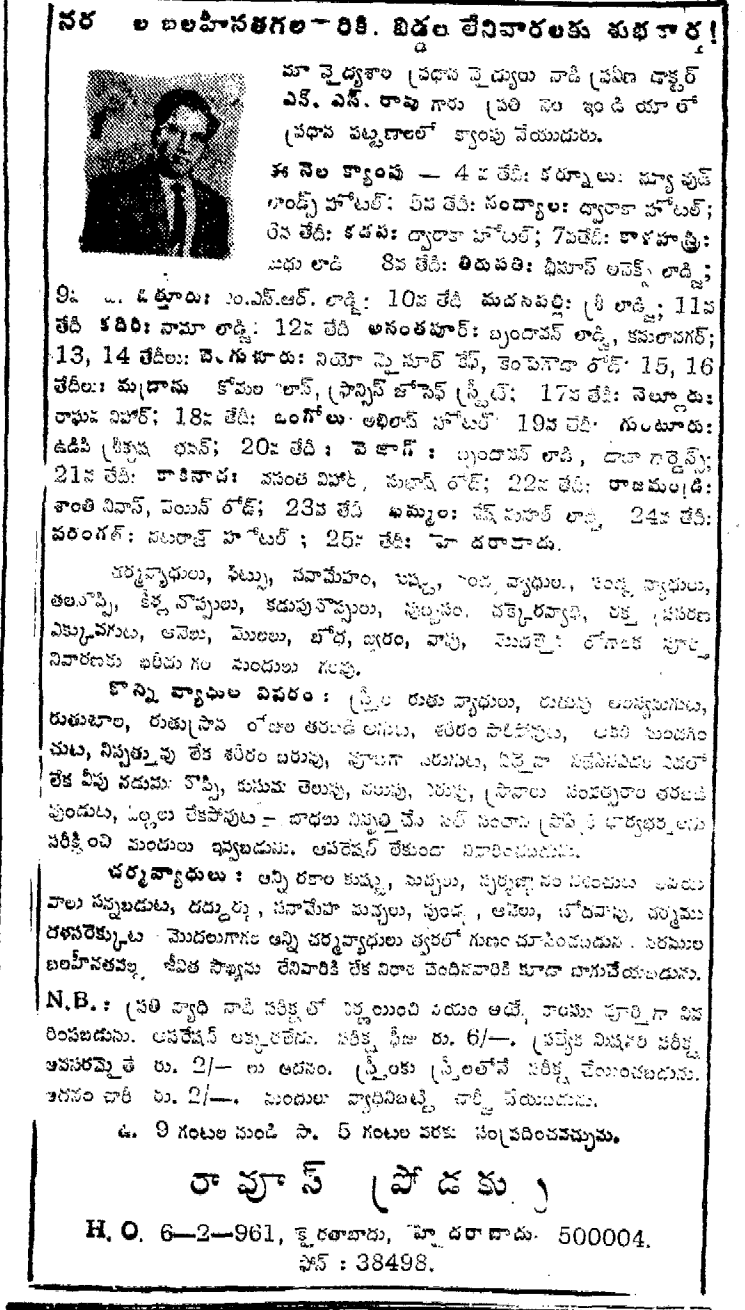 బలహీనతగల వారికి. బిడ్డలు లేనివారలకు శుభవార్త!
మా వైద్యశాల ప్రధాన వైద్యులు నాడీ ప్రవీణ డాక్టర్
ఎన్. ఎస్. రావు గారు ప్రతి నెల ఇండియాలో
ప్రధాన పట్టణాలలో క్యాంపు చేయుదురు.
ఈ నెల క్యాంపు — 4 వ తేదీ: కర్నూలు: న్యూ వుడ్
లాండ్స్ హోటల్; 5వ తేదీ: నంద్యాల: ద్వారకా హోటల్;
6వ తేదీ: కడప: ద్వారకా హోటల్; 7వతేదీ: కాళహస్తి:
లాడ్జి 8వ తేదీ: తిరుపతి: భీమాస్ అనెక్స్ లాడ్జి;
9వ చిత్తూరు: ఎం.ఎస్.ఆర్. లాడ్జి: 10వ తేదీ మదనపల్లి: శ్రీ లాడ్జి; 11వ
తేదీ కదిరి: నామా లాడ్జి: 12వ తేదీ అనంతపూర్: బృందావన్ లాడ్జి, కమలానగర్;
13, 14 తేదీలు: బెంగుళూరు: నియో మైసూర్ కేఫ్, కెంపెగౌడా రోడ్ 15, 16
తేదీలు: మద్రాసు కోమల విలాస్, ఫ్రాన్సిస్ జోసెఫ్ స్ట్రీట్; 17వ తేదీ: నెల్లూరు:
రాఘవ విహార్; 18వ తేదీ: ఒంగోలు అఖిలాస్ హోటల్ 19వ తేదీ గుంటూరు:
ఉడిపి శ్రీకృష్ణ భవన్; 20వ తేదీ : వైజాగ్ : బృందావన్ లాడ్జి, దాబా గార్డెన్స్;
21వ తేదీ: కాకినాడ: వసంత విహార్, సుభాష్ రోడ్; 22వ తేదీ: రాజమండ్రి:
శాంతి నివాస్, మెయిన్ రోడ్; 23వ తేదీ ఖమ్మం: లాడ్జి, 24వ తేదీ:
వరంగల్: నటరాజ్ హోటల్ ; 25వ తేదీ: హైదరాబాదు.
చర్మవ్యాధులు, ఫిట్సు, సవామేహం, వ్యాధులు, వ్యాధులు,
తలనొప్పి, కీళ్ళ నొప్పులు, కడుపునొప్పులు, చక్కెరవ్యాధి, రక్త ప్రసరణ
ఎక్కువగుట, ఆనెలు, మొలలు, బోధ, జ్వరం, వాపు, మొదలైన రోగాలకు పూర్తి
నివారణకు ఖరీదు గల మందులు గలవు.
కొన్ని వ్యాధుల వివరం : స్త్రీల రుతు వ్యాధులు, రుతువు ఆలస్యమగుట,
రుతుశూల, రుతుస్రావ రోజుల తరబడి అగుట, శరీరం పాలిపోవుట, ఆకలి మందగిం
చుట, నిస్సత్తువు లేక శరీరం బరువు,
లేక వీపు నడుము నొప్పి, కుసుమ తెలుపు, నలుపు, ఎరుపు, స్రావాలు సంవత్సరాల తరబడి
వుండుట, పిల్లలు లేకపోవుట — బాధలు సంతాన ప్రాప్తికి భార్యభర్తలను
పరీక్షించి మందులు ఇవ్వబడును. ఆపరేషన్ లేకుండా నివారించబడును.
చర్మవ్యాధులు : అన్ని రకాల కుష్ఠు, మచ్చలు, స్పర్శజ్ఞానం నశించుట అవయ
వాలు సన్నబడుట, దద్దుర్లు, సవామేహ మచ్చలు, పుండ్లు, ఆనెలు, బోదవాపు, చర్మము
దళసరెక్కుట మొదలుగాగల అన్ని చర్మవ్యాధులు త్వరలో గుణం చూపించబడును. నరముల
బలహీనతవల్ల జీవిత సౌఖ్యము లేనివారికి లేక నిరాశ చెందినవారికి కూడా బాగుచేయబడును.
N.B. : ప్రతి వ్యాధి నాడీ పరీక్షతో నిర్ణయించి నయం అయ్యే కాలము పూర్తిగా వివ
రింపబడును. ఆపరేషన్ అక్కరలేదు. పరీక్ష ఫీజు రు. 6/—. ప్రత్యేక మిషనరీ పరీక్ష
అవసరమైతే రు. 2/— లు అదనం. స్త్రీలకు స్త్రీలతోనే పరీక్ష చేయించబడును.
చార్జీ రు. 2/—. మందులు వ్యాధినిబట్టి చార్జి చేయబడును.
ఉ. 9 గంటల నుండి సా. 5 గంటల వరకు సంప్రదించవచ్చును.
రావూస్ ప్రోడక్ట్సు
H. O. 6—2—961, ఖైరతాబాదు, హైదరాబాదు- 500004.
ఫోన్ : 38498.